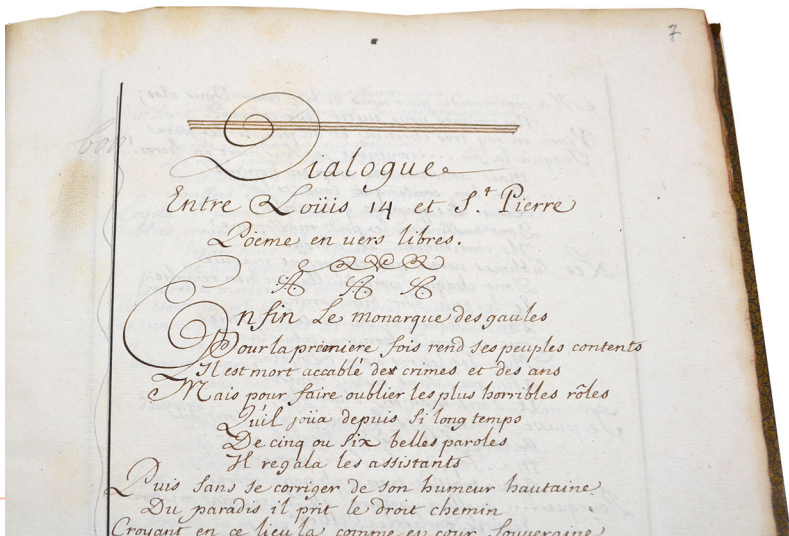 7
Dialogue
Entre Loüis 14 et S.t Pierre
Poëme en vers libres.
Enfin Le monarque des gaules
Pour la premiere fois rend ses peuples contents
Il est mort accablé des crimes et des ans
Mais pour faire oublier les plus horribles rôles
Qu'il joüa depuis si long temps
De cinq ou six belles paroles
Il regala les assistants
Puis sans se corriger de son humeur hautaine
Du paradis il prit le droit chemin
Croyant en ce lieu la comme en cour souveraine